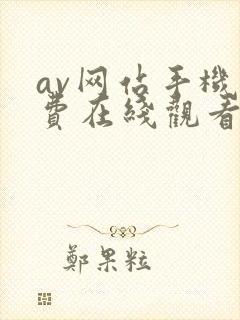 av网估手機
費在綫觀看
鄭果粒